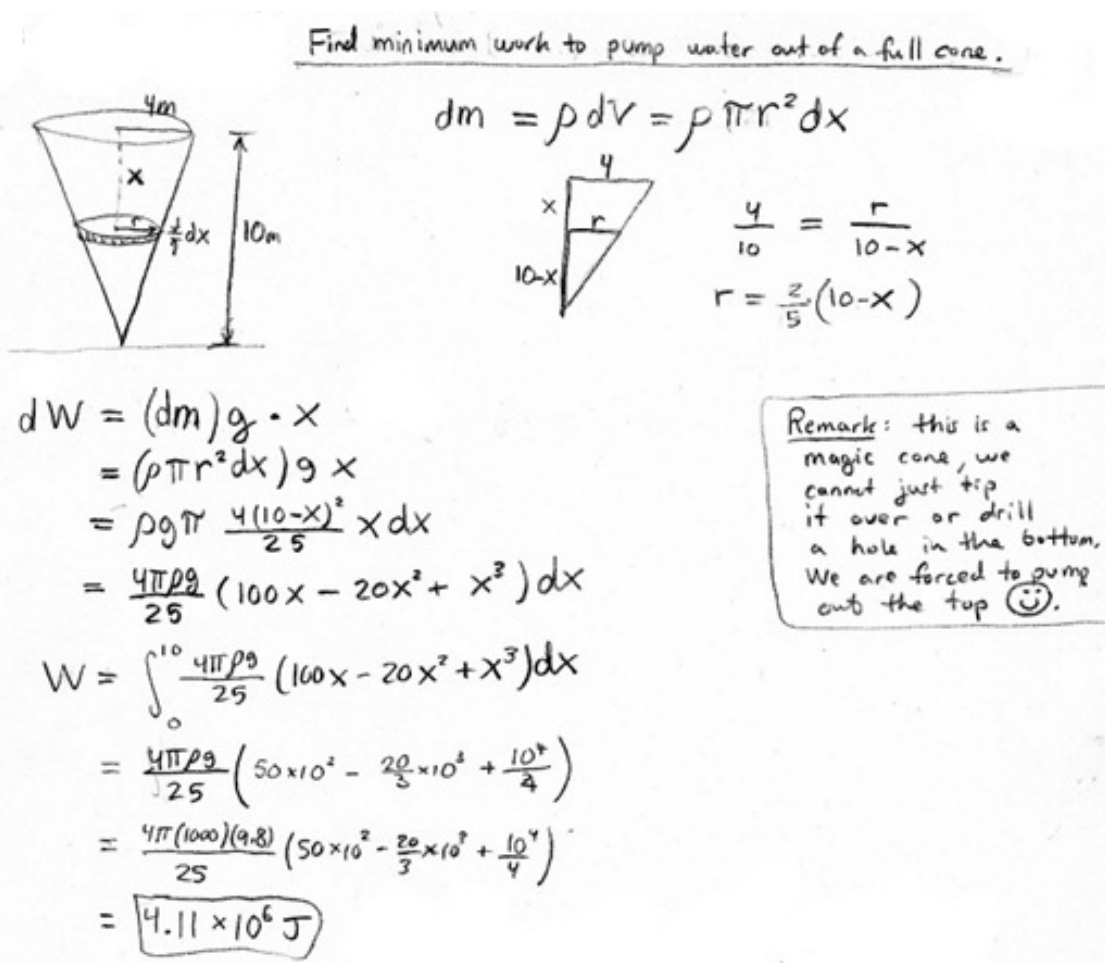 Find minimum work to pump water out of a full cone.
4m
x
r
dx
10m
dm = ρ dV = ρ π r² dx
4
x
r
10-x
4/10 = r/(10-x)
r = 2/5 (10-x)
dW = (dm) g · x
= (ρ π r² dx) g x
= ρ g π 4(10-x)²/25 x dx
= 4πρg/25 (100x - 20x² + x³) dx
W = ∫₀¹⁰ 4πρg/25 (100x - 20x² + x³) dx
= 4πρg/25 (50×10² - 20/3×10³ + 10⁴/4)
= 4π(1000)(9.8)/25 (50×10² - 20/3×10³ + 10⁴/4)
= 4.11 × 10⁶ J
Remark: this is a
magic cone, we
cannot just tip
it over or drill
a hole in the bottom.
We are forced to pump
out the top ☺.